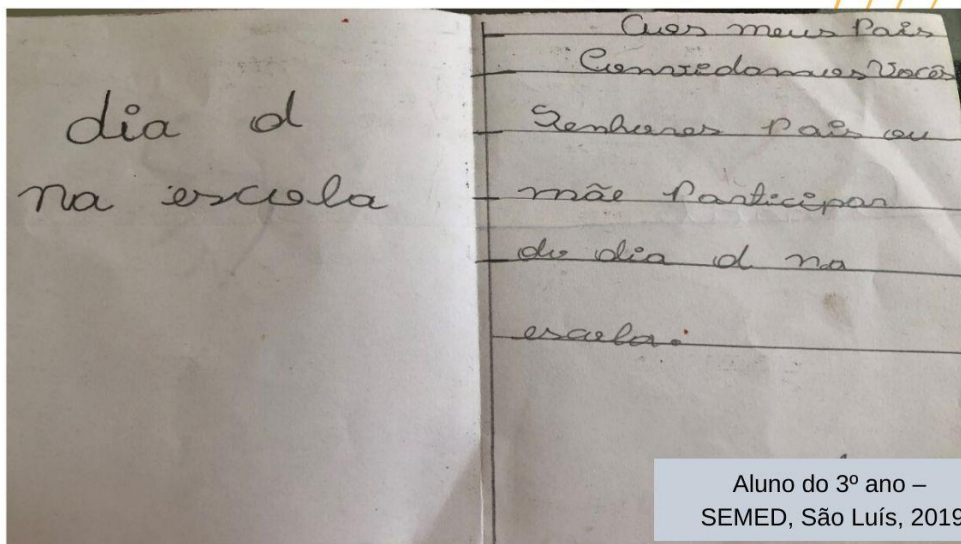 dia d
na escola
Aos meus Pais
Convedamos Vocês
Senhores Pais ou
mãe Participar
do dia d na
escola.
Aluno do 3º ano –
SEMED, São Luís, 2019